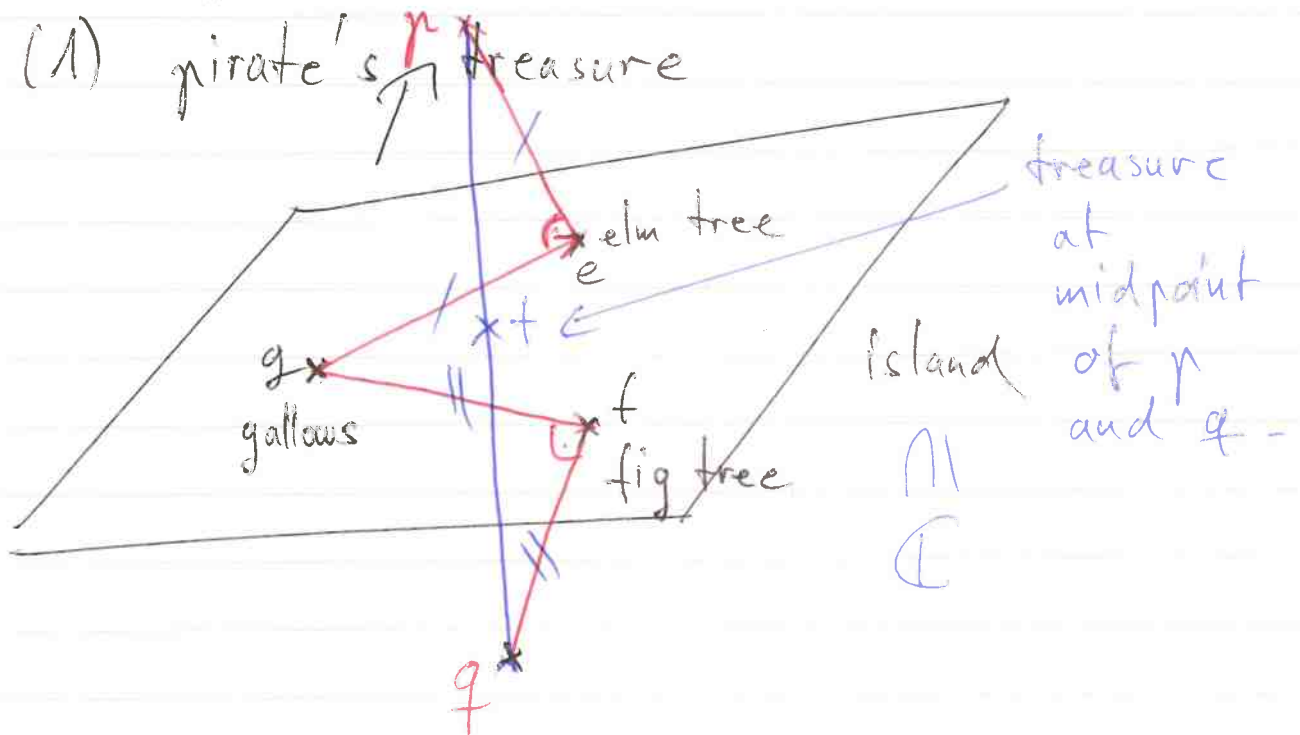 (1) pirate's treasure
p
elm tree
e
treasure
at
midpoint
of p
and q -
t
g
gallows
island
f
fig tree
⊂
ℂ
q